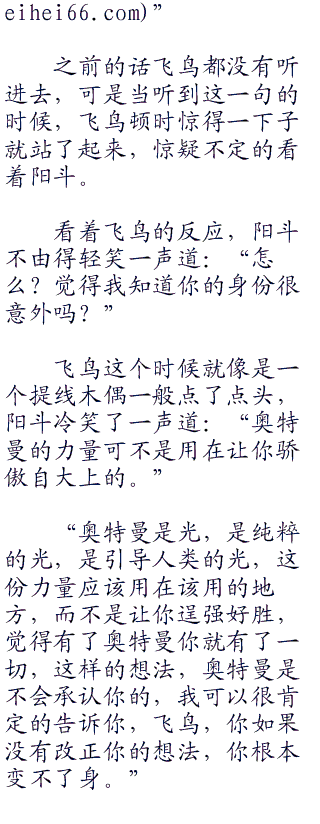 eihei66.com)”
之前的话飞鸟都没有听
进去，可是当听到这一句的
时候，飞鸟顿时惊得一下子
就站了起来，惊疑不定的看
着阳斗。
看着飞鸟的反应，阳斗
不由得轻笑一声道：“怎
么？觉得我知道你的身份很
意外吗？”
飞鸟这个时候就像是一
个提线木偶一般点了点头，
阳斗冷笑了一声道：“奥特
曼的力量可不是用在让你骄
傲自大上的。”
“奥特曼是光，是纯粹
的光，是引导人类的光，这
份力量应该用在该用的地
方，而不是让你逞强好胜，
觉得有了奥特曼你就有了一
切，这样的想法，奥特曼是
不会承认你的，我可以很肯
定的告诉你，飞鸟，你如果
没有改正你的想法，你根本
变不了身。”